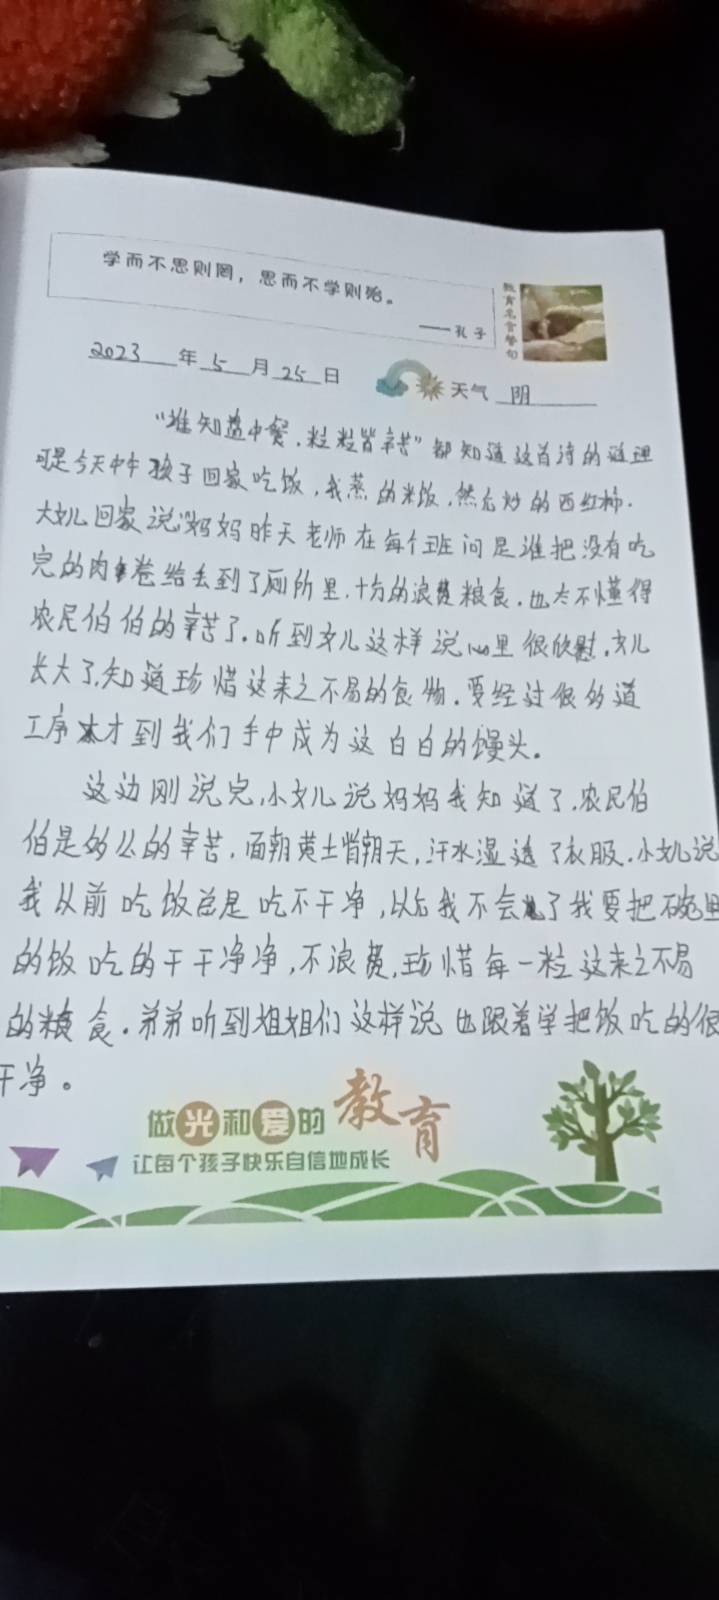 学而不思则罔，思而不学则殆。
——孔子
教育名言警句
2023年5月25日 天气 阴
“谁知盘中餐，粒粒皆辛苦”都知道这首诗的道理
可是今天中午孩子回家吃饭，我蒸的米饭，然后炒的西红柿.
大女儿回家说:妈妈昨天老师在每个班问是谁把没有吃
完的肉卷给丢到了厕所里,十分的浪费粮食.也太不懂得
农民伯伯的辛苦了.听到女儿这样说心里很欣慰,女儿
长大了,知道珍惜这来之不易的食物.要经过很多道
工序才到我们手中成为这白白的馒头。
这边刚说完,小女儿说妈妈我知道了.农民伯
伯是多么的辛苦,面朝黄土背朝天,汗水湿透了衣服.小女儿说
我从前吃饭总是吃不干净,以后我不会了我要把碗里
的饭吃的干干净净,不浪费,珍惜每一粒这来之不易
的粮食.弟弟听到姐姐们这样说也跟着学把饭吃的很
干净。
做光和爱的教育
让每个孩子快乐自信地成长